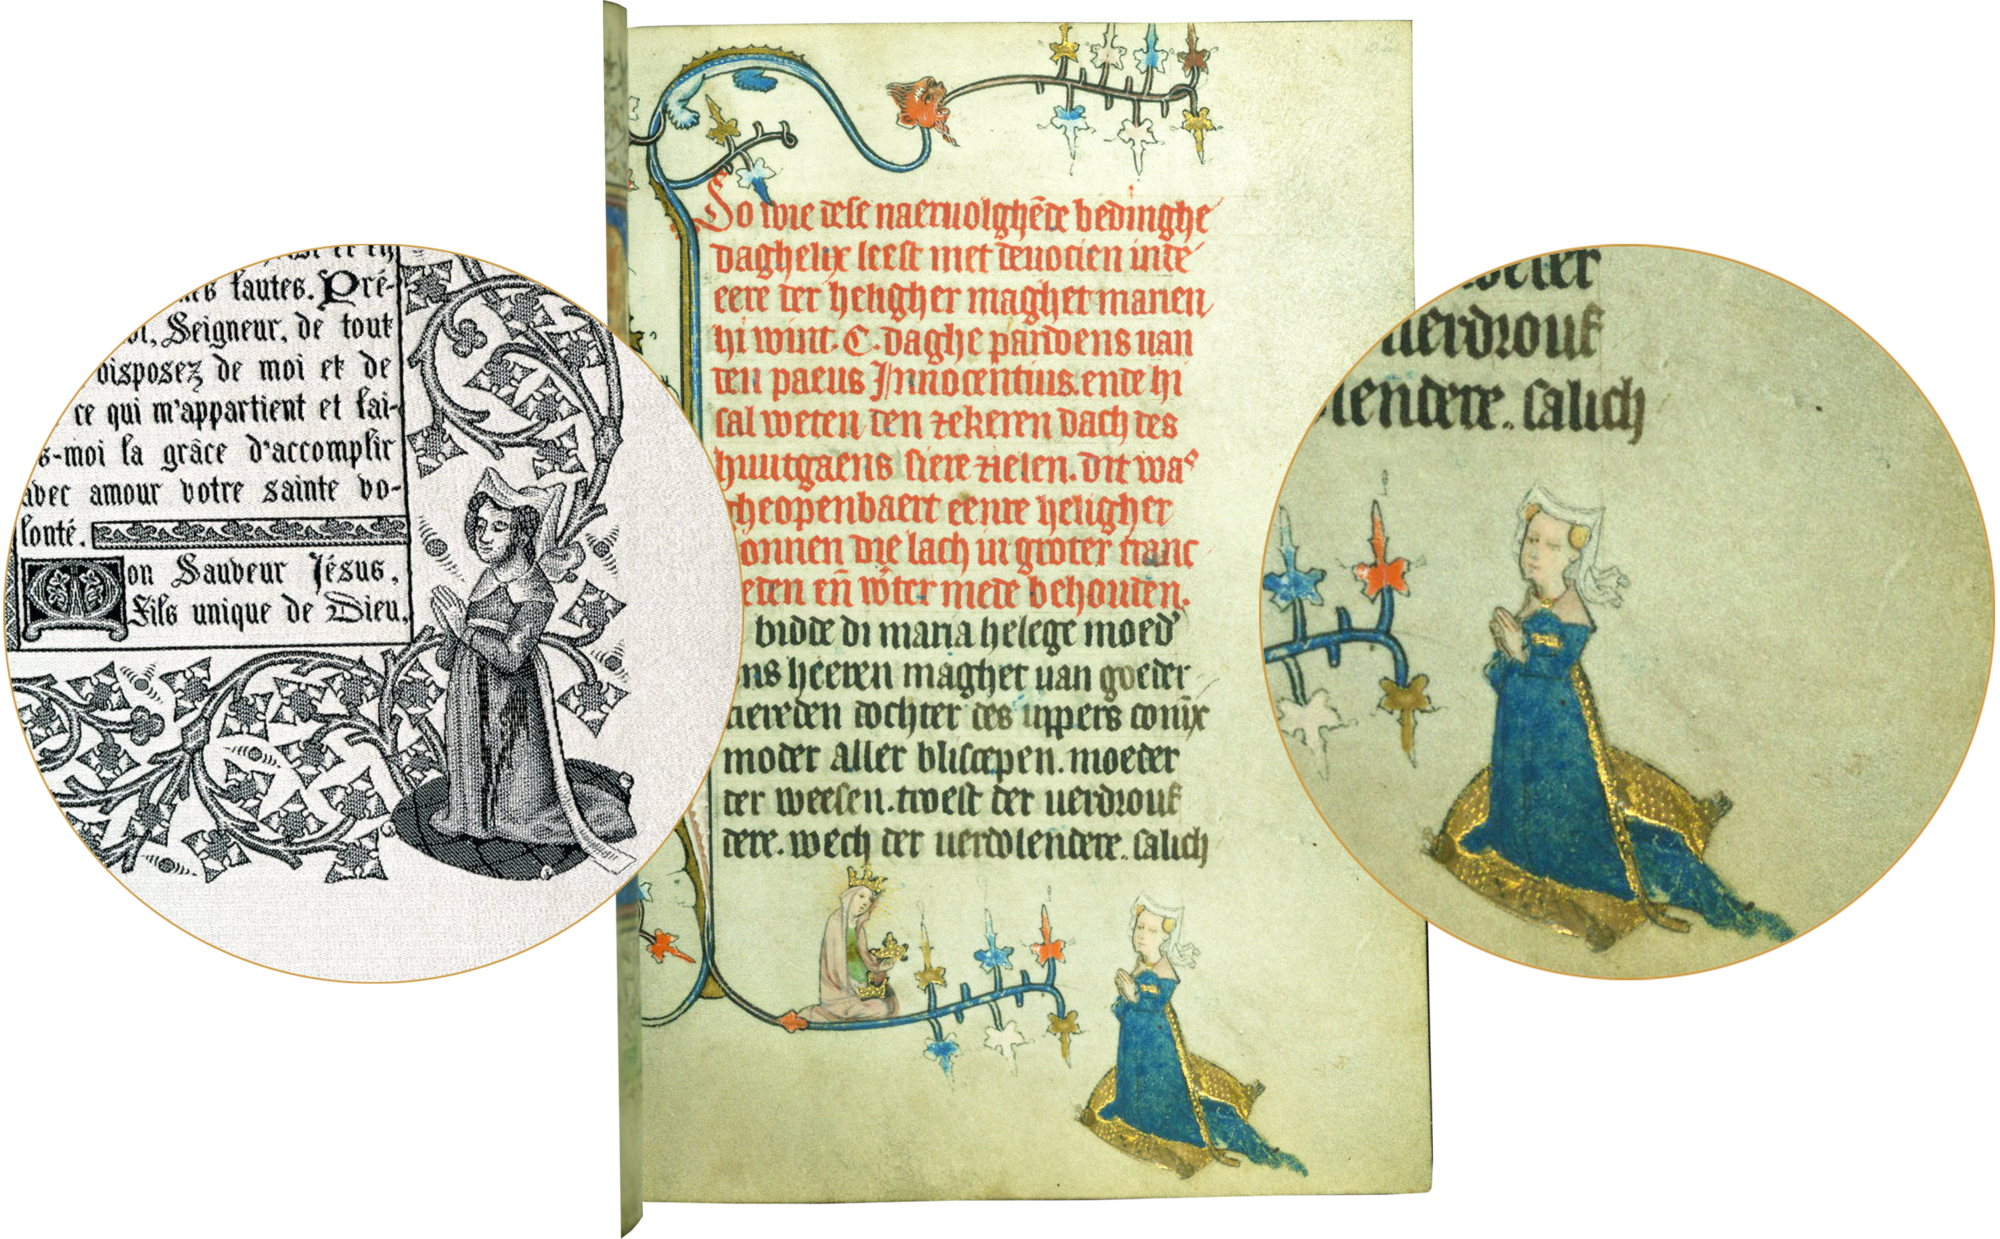 fautes. Pré-
Seigneur, de tout
disposez de moi et de
ce qui m'appartient et fai-
s-moi la grâce d'accomplir
avec amour votre sainte vo-
lonté.
Mon Sauveur Jésus,
Fils unique de Dieu,
So wie dese naeruolghēde bedinghe
daghelix leest met deuocien in de
eere der heligher maghet marien
hi wint. C. daghe pardoens uan
den paeus Innocentius. ende hi
sal weten den zekeren dach des
huutgaens siere zielen. dit was
gheopenbaert eenre heligher
onnen die lach in groter
eten eñ mede behouden.
bidde di maria helege moed'
ns heeren maghet uan goeder
tiereden dochter des uppers conīx
moder aller bliscepen. moeder
der weesen. troest der uerdrouf
dere. wech der uerdolendere. salich
uerdrouf
lendere. salich